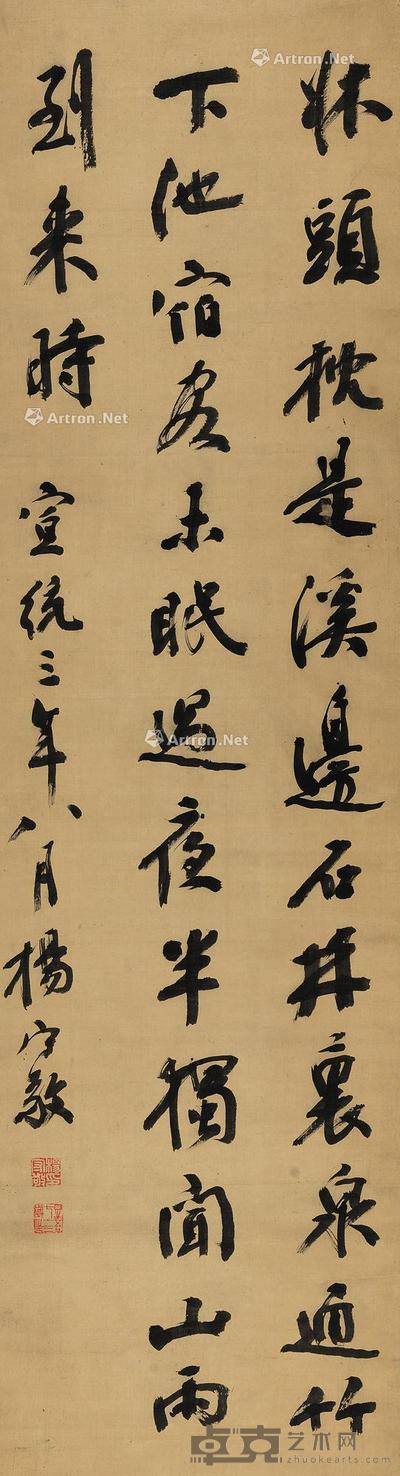 牀頭枕是溪邊石井裏泉通竹
下池宿客未眠過夜半獨聞山雨
到來時
宣統三年八月楊守敬
Artron.Net
Artron.Net
Artron.Net
卓克艺术网
zhuokearts.com